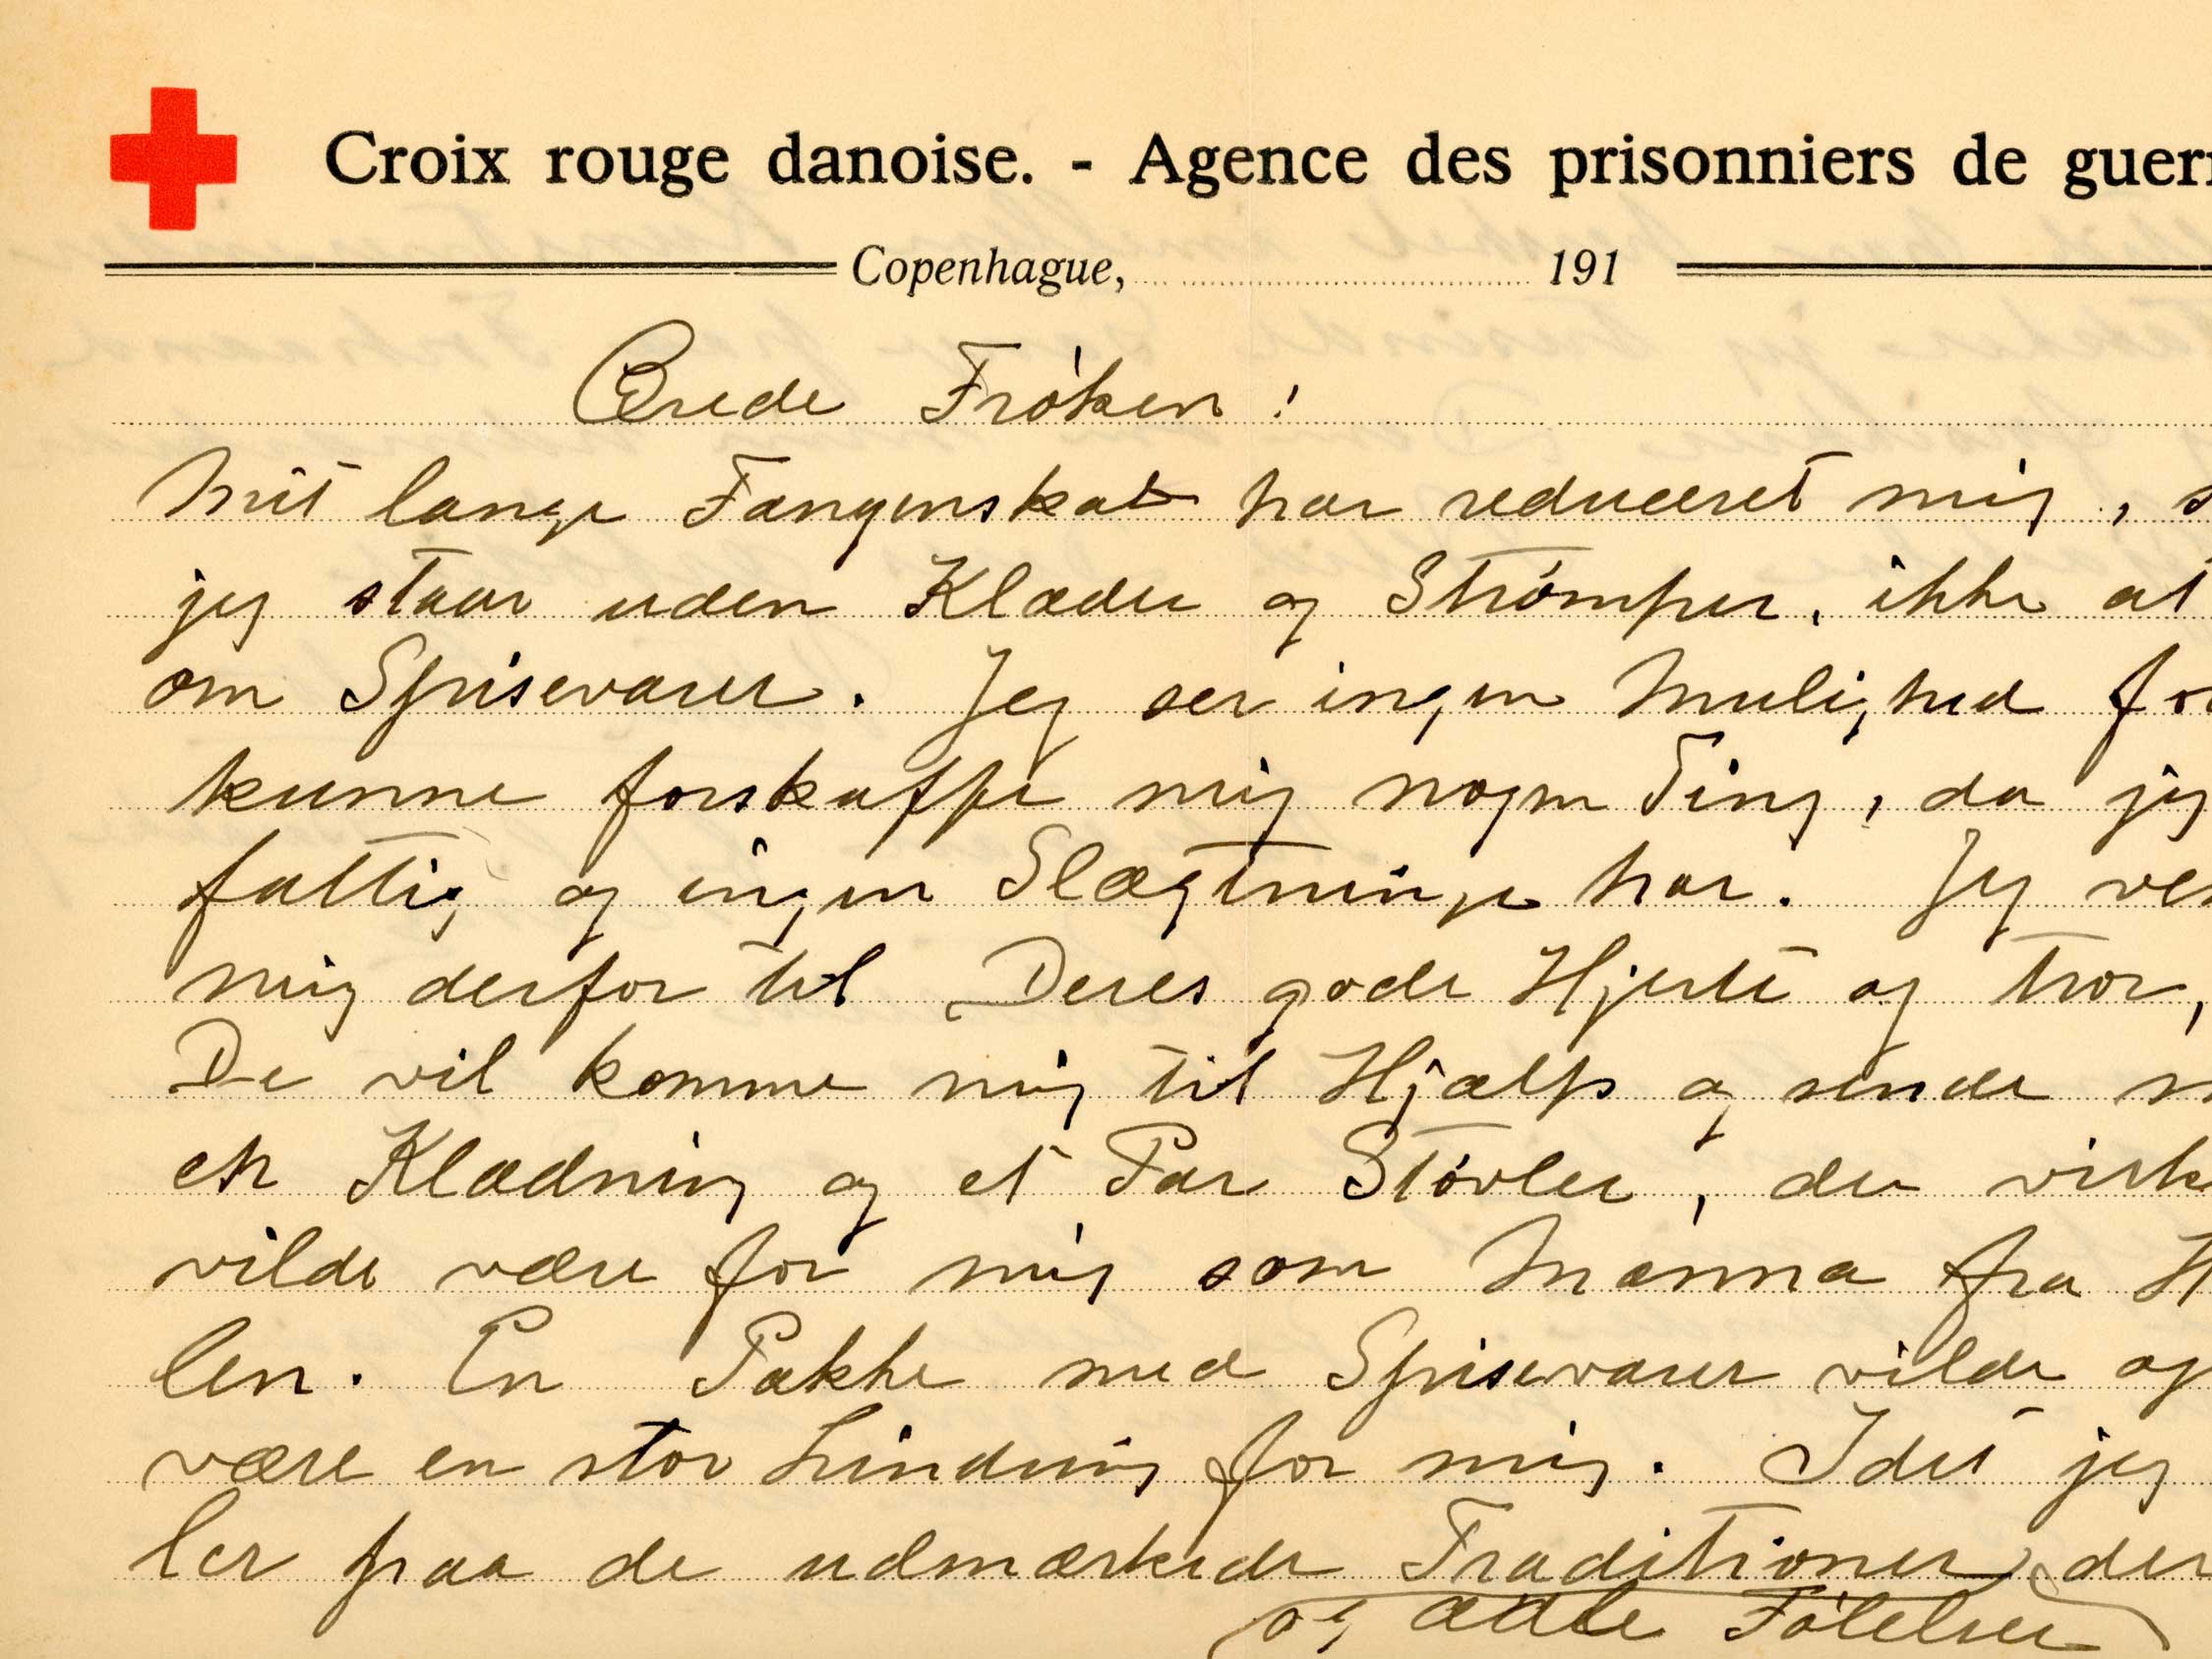 Croix rouge danoise. - Agence des prisonniers de guerr
Copenhague, 191
Ærede Frøken!
Mit lange Fangenskab har reduceret mig, s
jeg staar uden Klæder og Strømper, ikke at
om Spisevarer. Jeg ser ingen Mulighed for
kunne forskaffe mig nogen Ting, da jeg
fattig og ingen Slægtninge har. Jeg ven
mig derfor til Deres gode Hjerte og tror,
De vil komme mig til Hjælp og sende m
en Klædning og et Par Støvler, der virk
vilde være for mig som Manna fra H
len. En Pakke med Spisevarer vilde og
være en stor Lindring for mig. Idet jeg
ler paa de udmærkede Traditioner der
og ædle Følelser